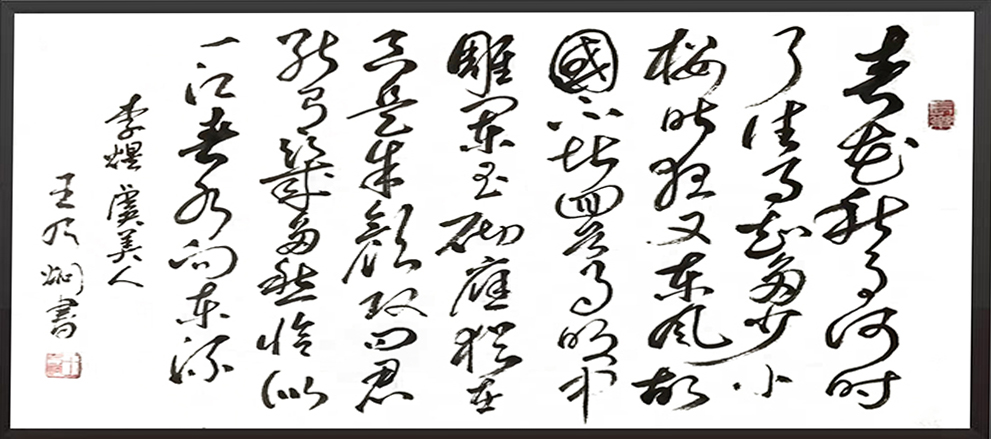 春花秋月何时
了往事知多少小
楼昨夜又东风故
國不堪回首月明中
雕阑玉砌應猶在
只是朱颜改问君
能有幾多愁恰似
一江春水向东流
李煜 虞美人
王乃炯書